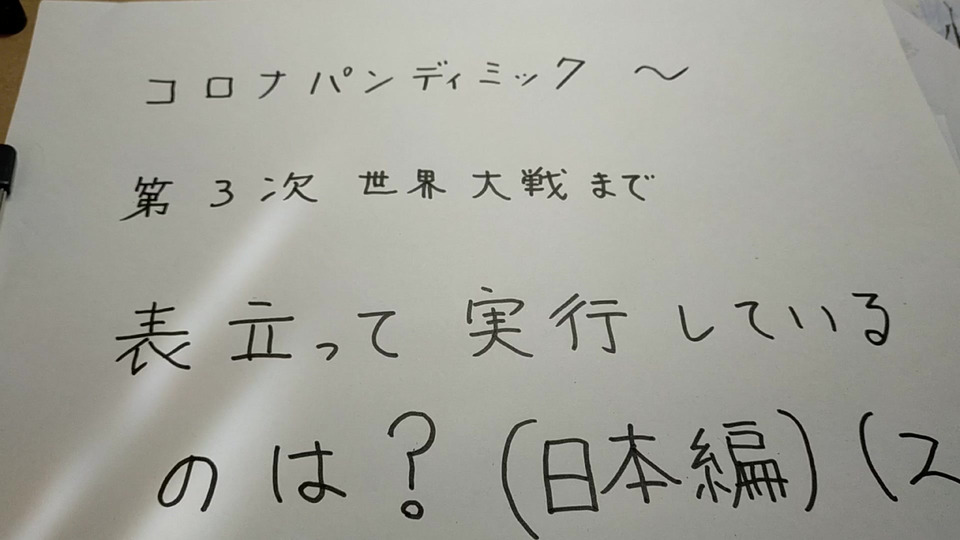 コロナパンディミック ～
第3次 世界大戦まで
表立って 実行している
のは？(日本編)(